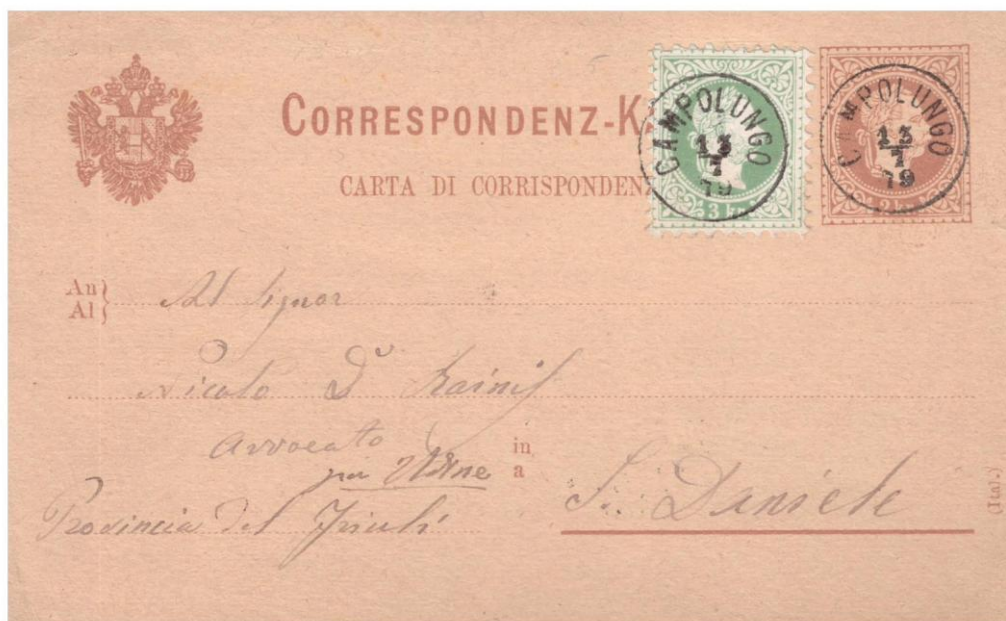 CORRESPONDENZ-K
CARTA DI CORRISPONDEN
CAMPOLUNGO
13
7
79
3 kr
C MPOLUNGO
13
7
79
2 kr
An
Al
Al Signor
Nicolo D'
Avvocato
per Udine
in
a
S. Daniele
Provincia del Friuli
(Ital.)